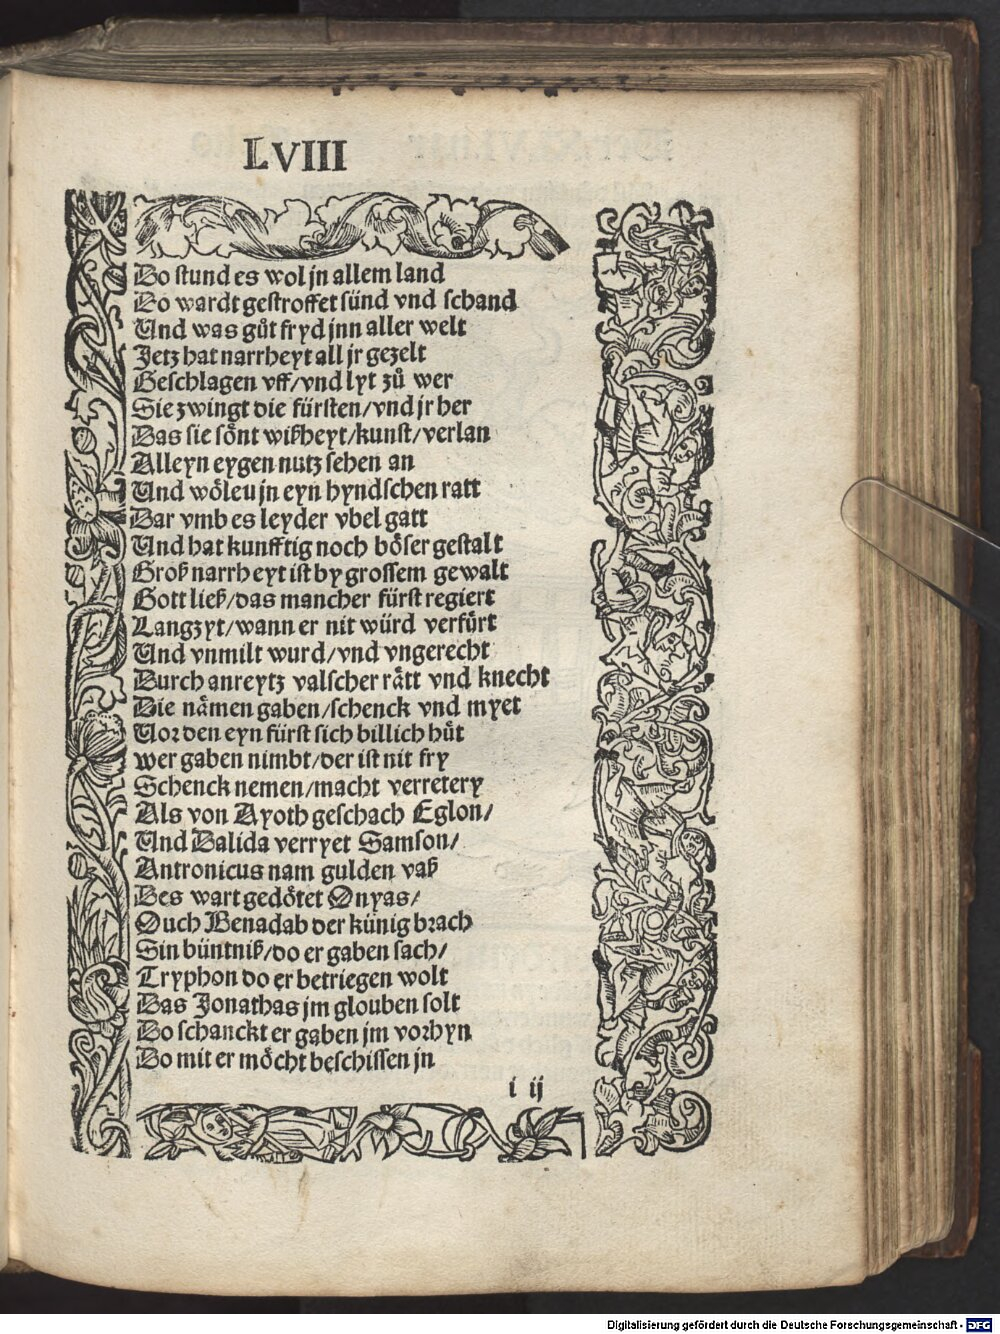 LVIII
Do stund es wol jn allem land
Do wardt gestroffet sünd vnd schand
Vnd was gůt fryd jnn aller welt
Jetz hat narrheyt all jr gezelt
Geschlagen vff/vnd lyt zů wer
Sie zwingt die fürsten/vnd jr her
Das sie sönt wißheyt/kunst/verlan
Alleyn eygen nutz sehen an
Vnd wöleu jn eyn hyndschen ratt
Dar vmb es leyder vbel gatt
Vnd hat kunfftig noch böser gestalt
Groß narrheyt ist by grossem gewalt
Gott ließ/das mancher fürst regiert
Lang zyt/wann er nit würd verfürt
Vnd vnmilt wurd/vnd vngerecht
Durch anreytz valscher rätt vnd knecht
Die nämen gaben/schenck vnd myet
Vor den eyn fürst sich billich hüt
wer gaben nimbt/der ist nit fry
Schenck nemen/macht verretery
Als von Ayoth geschach Eglon/
Vnd Dalida verryet Samson/
Antronicus nam gulden vaß
Des wart gedötet Onyas/
Ouch Benadab der künig brach
Sin büntniß/do er gaben sach/
Tryphon do er betriegen wolt
Das Jonathas jm glouben solt
Do schanckt er gaben jm vorhyn
Do mit er möcht beschissen jn
i ij
Digitalisierung gefördert durch die Deutsche Forschungsgemeinschaft - DFG